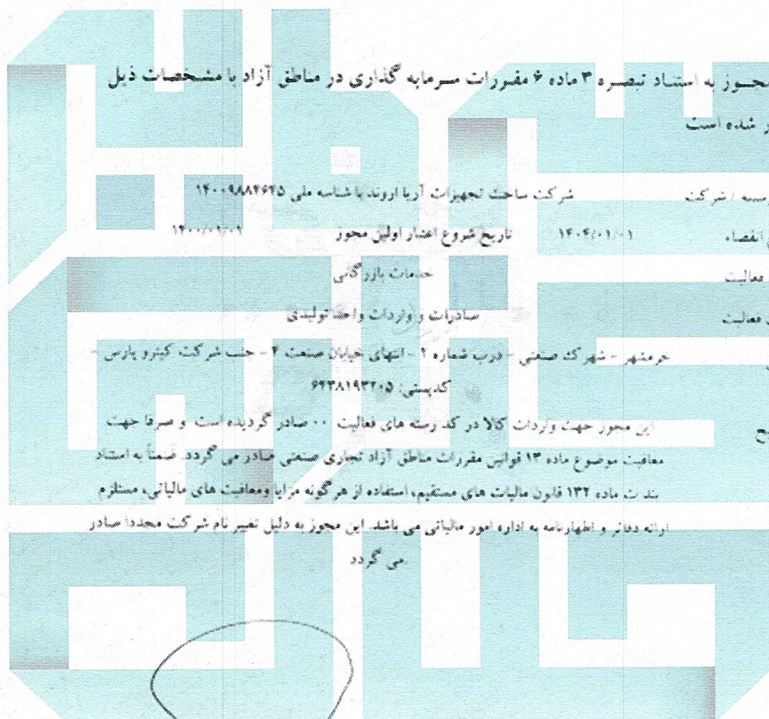 مجوز به استناد تبصره ۳ ماده ۶ مقررات سرمایه گذاری در مناطق آزاد با مشخصات ذیل
شده است
شرکت شرکت ساخت تجهیزات آریا اروند با شناسه ملی ۱۴۰۰۹۸۸۴۶۴۵
انقضاء ۱۴۰۴/۰۱/۰۱ تاریخ شروع اعتبار اولین مجوز ۱۴۰۰/۰۱/۰۱
فعالیت خدمات بازرگانی
فعالیت صادرات و واردات واحد تولیدی
خرمشهر - شهرک صنعتی - درب شماره ۱ - انتهای خیابان صنعت ۲ - جنب شرکت کیترو پارس -
کدپستی: ۶۴۳۸۱۹۳۲۰۵
این مجوز جهت واردات کالا در کد رسته های فعالیت ۰۰ صادر گردیده است و صرفا جهت
معافیت موضوع ماده ۱۳ قوانین مقررات مناطق آزاد تجاری صنعتی صادر می گردد. ضمناً به استناد
بند ت ماده ۱۳۲ قانون مالیات های مستقیم، استفاده از هرگونه مزایا ومعافیت های مالیاتی، مستلزم
ارائه دفاتر و اظهارنامه به اداره امور مالیاتی می باشد. این مجوز به دلیل تغییر نام شرکت مجددا صادر
می گردد